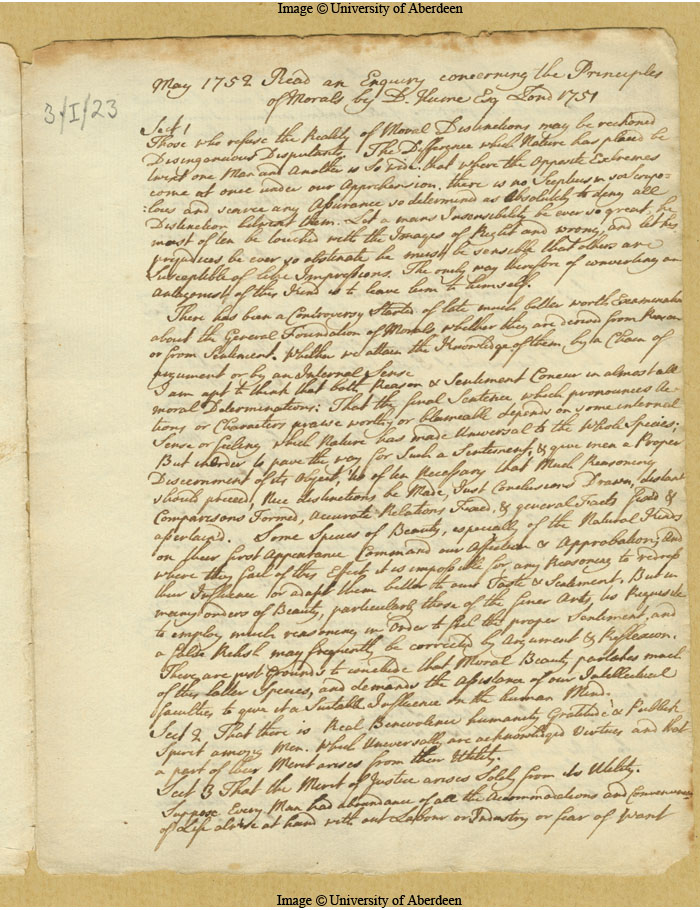 Image © University of Aberdeen
3/I/23
May 1752 Read an Enquiry concerning the Principles
of Morals by D. Hume Esq Lond 1751
Sect 1
Those who refuse the Reality of Moral Distinctions may be reckoned
Disingenuous Disputants. The Difference which Nature has placed be
twixt one Man and Another is so wide. that where the Opposite Extremes
come at once under our Apprehension. there is no Scepticism so scrupu-
:lous and scarce any Assurance so determined as Absolutely to deny all
Distinction betwixt them. Let a mans Insensibility be ever so great, he
must often be touched with the Images of Right and wrong, and let his
prejudices be ever so obstinate he must be sensible that others are
Susceptible of like Impressions. The only way therefore of converting an
Antagonist of this Kind is to leave him to himself.
There has been a Controversy Started of late much better worth Examination
about the General Foundation of Morals, whether they are derived from Reason
or from Sentiment. Whether we attain the Knowledge of them, by a Chain of
Argument or by an Internal Sense
I am apt to think that both Reason & Sentiment Concur in almost all
moral Determinations: That the final Sentence which pronounces Ac
tions or Characters praise worthy or blameable depends on some internal
Sense or feeling which Nature has made Universal to the Whole Species;
But in order to pave the way for Such a Sentiment, & give men a Proper
Discernment of its Object, tis often Necessary that Much Reasoning
should preceed, Nice distinctions be Made, Just Conclusions Drawn, distant
Comparisons Formed, Accurate Relations Fixed, & general Facts fixed &
ascertaind. Some Species of Beauty, especially of the Natural Kinds
on their first Appearance Command our Affection & Approbation; and
where they fail of this Effect it is impossible for any Reasoning to redress
their Influence or adapt them better to our Taste & Sentiment. But in
many orders of Beauty, particularly those of the finer Arts, tis Requisite
to employ much reasoning in Order to feel the proper Sentiment, and
a false Relish may frequently be corrected by Argument & Reflexion.
There are just Grounds to conclude that Moral Beauty partakes much
of this latter Species, and demands the Assistance of our Intellectual
faculties to give it a Suitable Influence on the human Mind.
Sect 2 That there is Real Benevolence humanity Gratitude & Publick
Spirit among Men. Which Universally are acknowledged Virtues and that
a part of their Merit arises from their Utility.
Sect 3 That the Merit of Justice arises Solely from its Utility.
Suppose Every Man had abundance of all the Accommodations and Conveniences
of Life at hand with out Labour or Industry or fear of Want
Image © University of Aberdeen